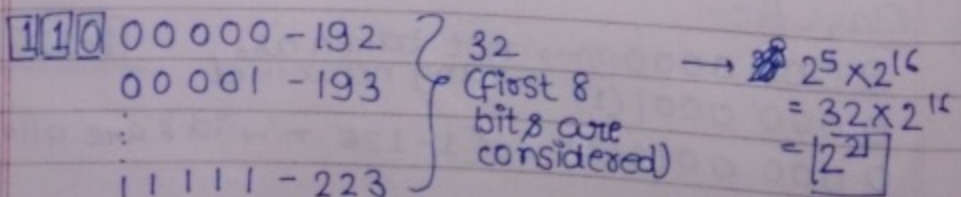 110 00000 - 192
00001 - 193
⋮
11111 - 223
32
(first 8
bits are
considered)
→ 2⁵ × 2¹⁶
= 32 × 2¹⁶
= 2²¹